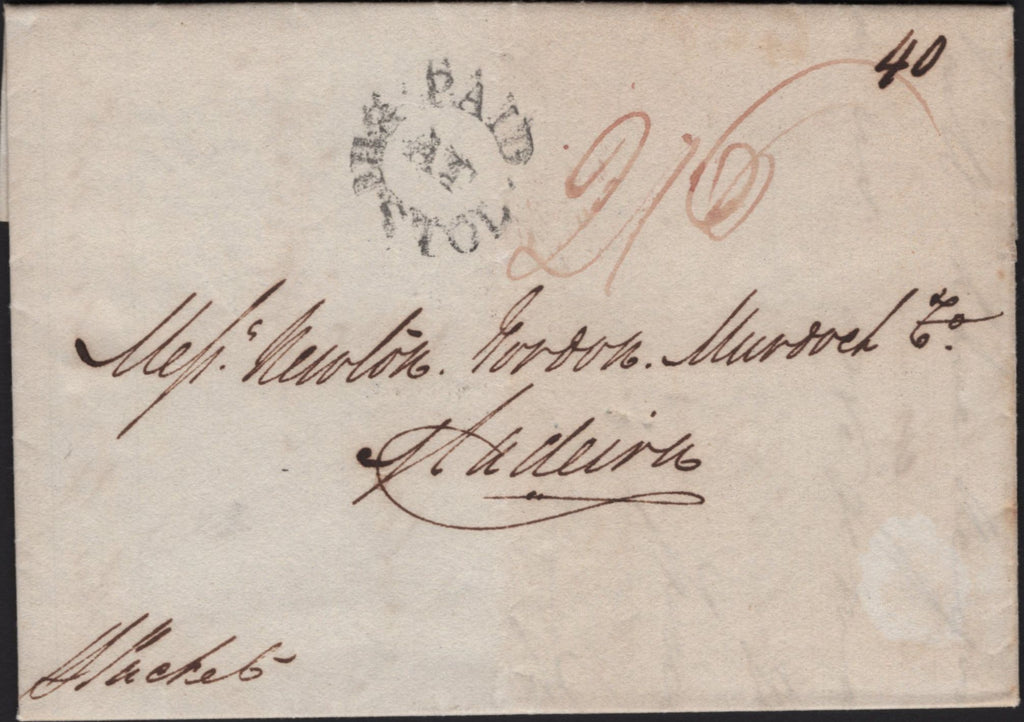 40
PAID
AT
2/6
Messˢ. Newton. Gordon. Murdoch & Co.
Madeira
Packet